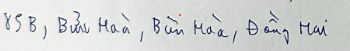 85B, Bửu Hoà, Biên Hòa, Đồng Nai